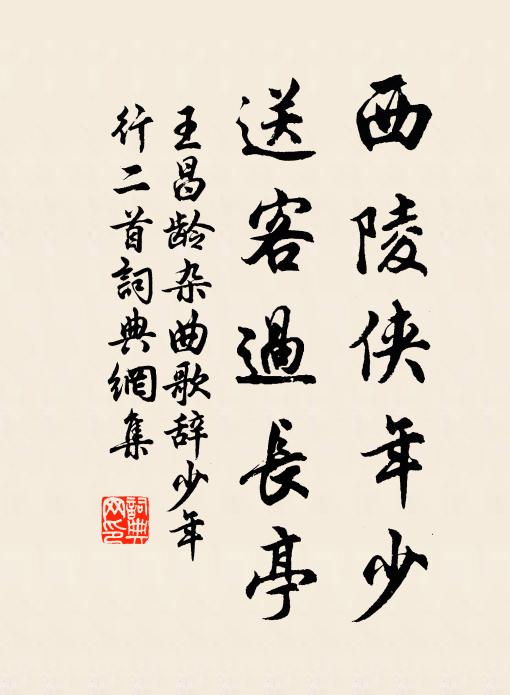 西陵侠年少
送客過長亭
王昌龄杂曲歌辞少年
行二首詞典網集
詞典
网印